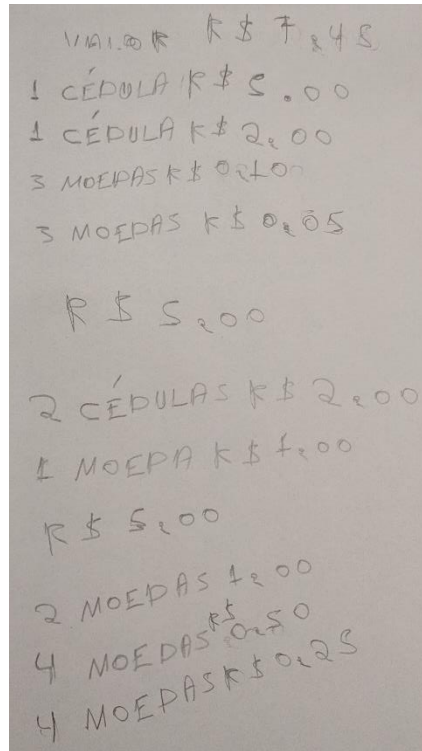 VALOR R$ 7,45
1 CÉDULA R$ 5.00
1 CÉDULA R$ 2,00
3 MOEDAS R$ 0,10
3 MOEDAS R$ 0,05
R$ 5,00
2 CÉDULAS R$ 2,00
1 MOEDA R$ 1,00
R$ 5,00
2 MOEDAS 1,00
4 MOEDAS R$ 0,50
4 MOEDAS R$ 0,25